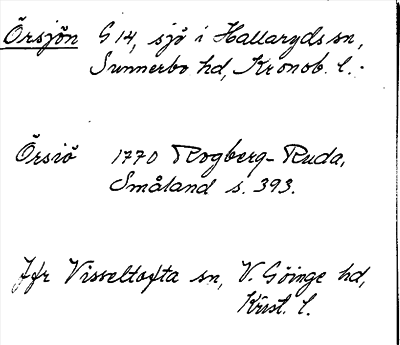 Örsjön G 14, sjö i Hallaryds sn,
Sunnerbo hd, Kronob. l.
Örsiö 1770 Rogberg-Ruda,
Småland s. 393.
Jfr Visseltofta sn, V. Göinge hd,
Krist. l.